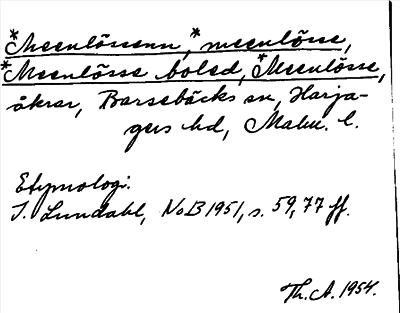 *Meenlössenn, *meenlösse,
*Meenlösse boled, *Meenlösse,
åkrar, Barsebäcks sn, Harja-
gers hd, Malm. l.
Etymologi.
I. Lundahl, NoB 1951, s. 59, 77 ff.
Th. A. 1954.